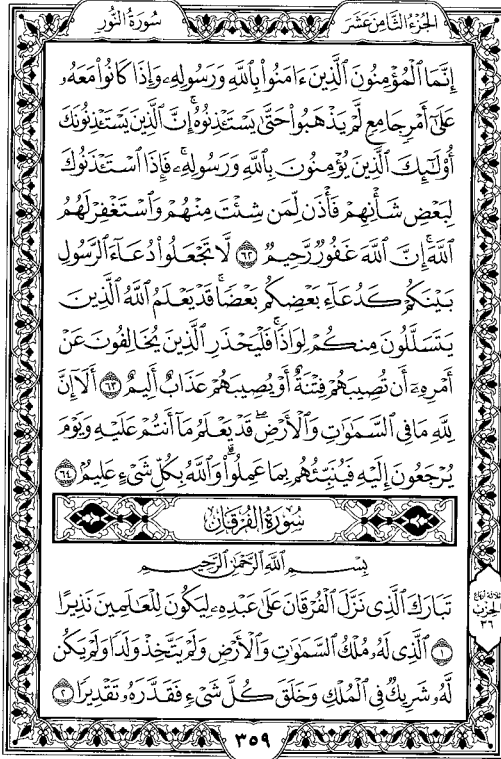 الجزء الثامن عشر
سورة النور
إِنَّمَا ٱلْمُؤْمِنُونَ ٱلَّذِينَ ءَامَنُوا۟ بِٱللَّهِ وَرَسُولِهِۦ وَإِذَا كَانُوا۟ مَعَهُۥ
عَلَىٰٓ أَمْرٍ جَامِعٍ لَّمْ يَذْهَبُوا۟ حَتَّىٰ يَسْتَـْٔذِنُوهُ ۚ إِنَّ ٱلَّذِينَ يَسْتَـْٔذِنُونَكَ
أُو۟لَٰٓئِكَ ٱلَّذِينَ يُؤْمِنُونَ بِٱللَّهِ وَرَسُولِهِۦ ۚ فَإِذَا ٱسْتَـْٔذَنُوكَ
لِبَعْضِ شَأْنِهِمْ فَأْذَن لِّمَن شِئْتَ مِنْهُمْ وَٱسْتَغْفِرْ لَهُمُ
ٱللَّهَ ۚ إِنَّ ٱللَّهَ غَفُورٌ رَّحِيمٌ ٦٢ لَّا تَجْعَلُوا۟ دُعَآءَ ٱلرَّسُولِ
بَيْنَكُمْ كَدُعَآءِ بَعْضِكُم بَعْضًا ۚ قَدْ يَعْلَمُ ٱللَّهُ ٱلَّذِينَ
يَتَسَلَّلُونَ مِنكُمْ لِوَاذًا ۚ فَلْيَحْذَرِ ٱلَّذِينَ يُخَالِفُونَ عَنْ
أَمْرِهِۦٓ أَن تُصِيبَهُمْ فِتْنَةٌ أَوْ يُصِيبَهُمْ عَذَابٌ أَلِيمٌ ٦٣ أَلَآ إِنَّ
لِلَّهِ مَا فِى ٱلسَّمَٰوَٰتِ وَٱلْأَرْضِ ۖ قَدْ يَعْلَمُ مَآ أَنتُمْ عَلَيْهِ وَيَوْمَ
يُرْجَعُونَ إِلَيْهِ فَيُنَبِّئُهُم بِمَا عَمِلُوا۟ ۗ وَٱللَّهُ بِكُلِّ شَىْءٍ عَلِيمٌۢ ٦٤
سورة الفرقان
بِسْمِ ٱللَّهِ ٱلرَّحْمَٰنِ ٱلرَّحِيمِ
تَبَارَكَ ٱلَّذِى نَزَّلَ ٱلْفُرْقَانَ عَلَىٰ عَبْدِهِۦ لِيَكُونَ لِلْعَٰلَمِينَ نَذِيرًا
١ ٱلَّذِى لَهُۥ مُلْكُ ٱلسَّمَٰوَٰتِ وَٱلْأَرْضِ وَلَمْ يَتَّخِذْ وَلَدًا وَلَمْ يَكُن
لَّهُۥ شَرِيكٌ فِى ٱلْمُلْكِ وَخَلَقَ كُلَّ شَىْءٍ فَقَدَّرَهُۥ تَقْدِيرًا ٢
ثلاثة أرباع
الحزب
٣٦
٣٥٩